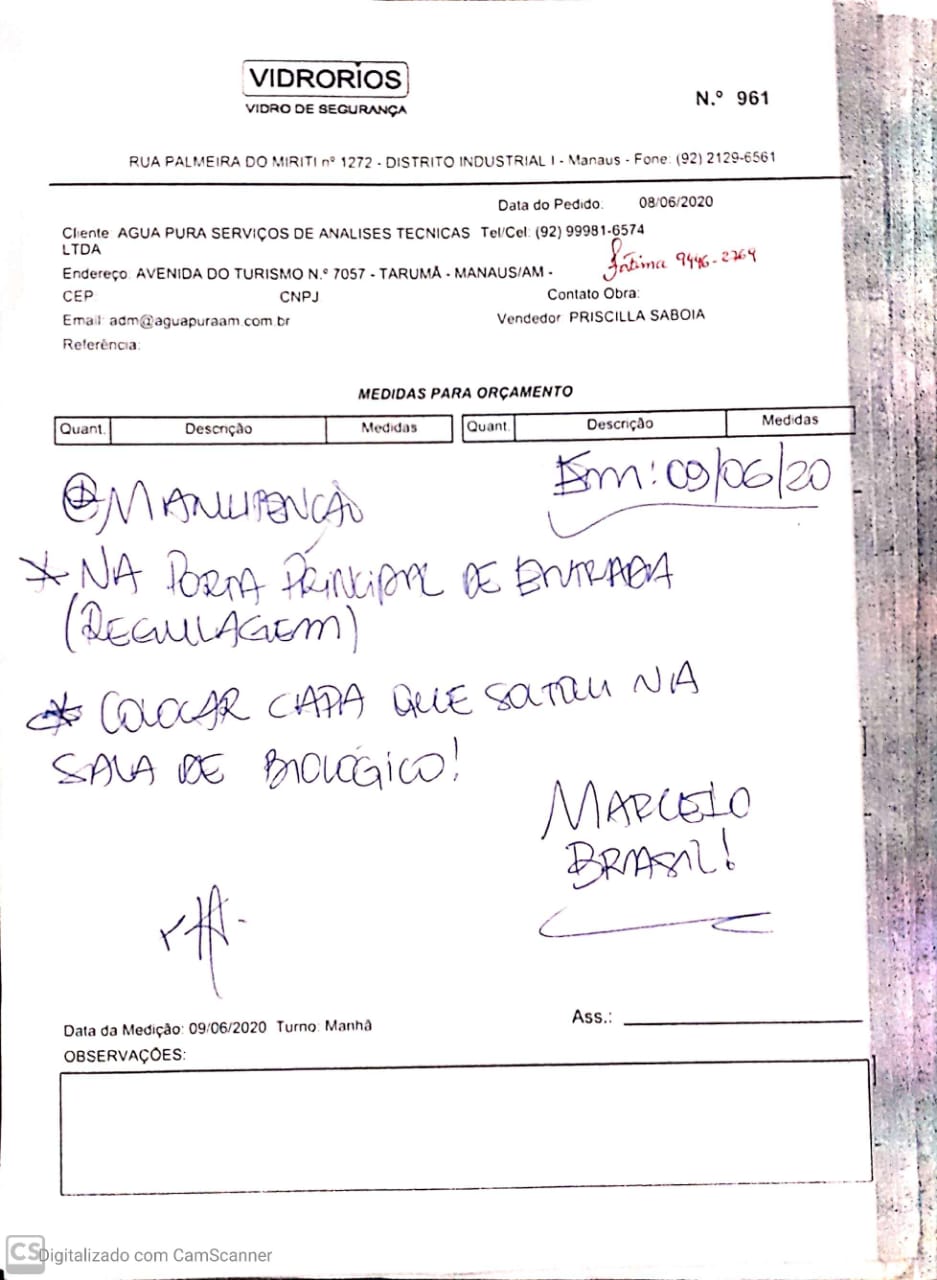 VIDRORIOS
VIDRO DE SEGURANÇA
N.º 961
RUA PALMEIRA DO MIRITI nº 1272 - DISTRITO INDUSTRIAL I - Manaus - Fone: (92) 2129-6561
Data do Pedido: 08/06/2020
Cliente AGUA PURA SERVIÇOS DE ANALISES TECNICAS Tel/Cel: (92) 99981-6574
LTDA
Fátima 9446-2769
Endereço: AVENIDA DO TURISMO N.º 7057 - TARUMÃ - MANAUS/AM -
CEP CNPJ Contato Obra:
Email: adm@aguapuraam.com.br Vendedor PRISCILLA SABOIA
Referência:
MEDIDAS PARA ORÇAMENTO
Quant. Descrição Medidas Quant. Descrição Medidas
Em: 09/06/20
MANUTENÇÃO
* NA PORTA PRINCIPAL DE ENTRADA
(REGULAGEM)
* COLOCAR CAPA QUE SOLTOU NA
SALA DE BIOLÓGICO!
MARCELO
BRASIL!
Data da Medição: 09/06/2020 Turno: Manhã Ass.:
OBSERVAÇÕES:
CS Digitalizado com CamScanner